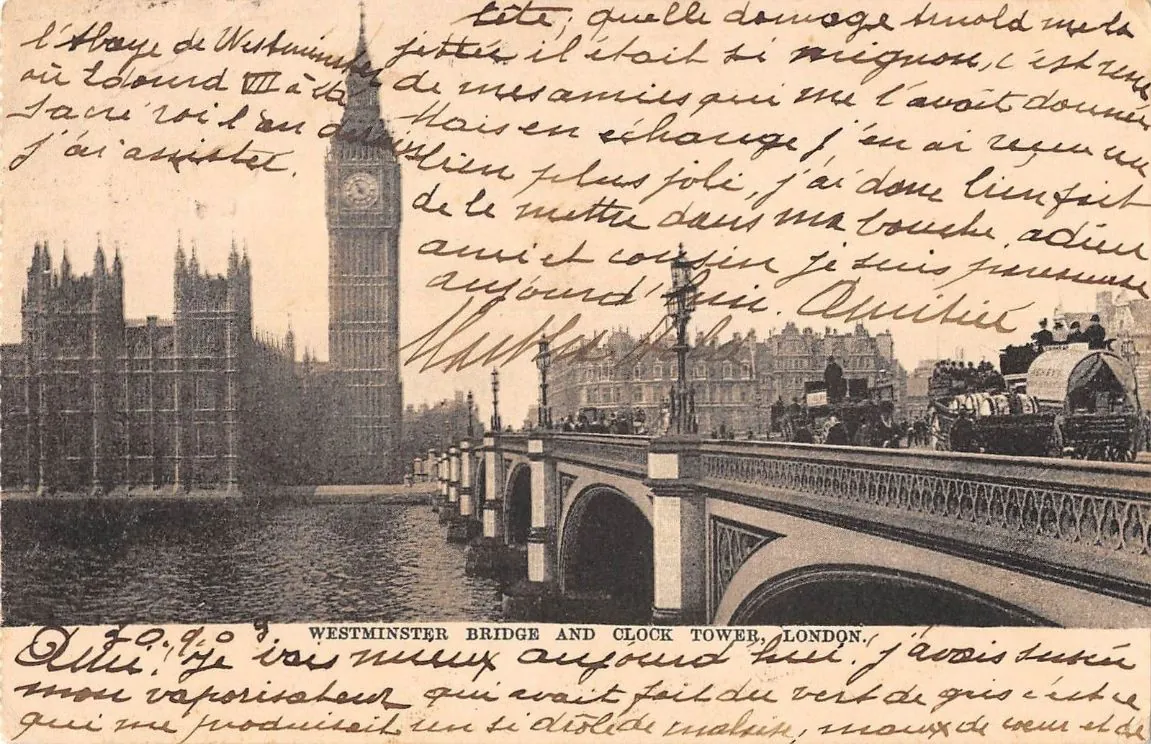 l'Abaye de Westminster
où Edouard VII à été
sacré roi l'an dernier
j'ai assistée.
tête; quelle domage Arnold me la
jettée il était si mignon, c'est une
de mes amies qui me l'avait donnée
Mais en échange j'en ai reçu un
bien plus joli, j'ai donc bien fait
de le mettre dans ma bouche. adieu
ami et cousin je suis paresseuse
aujourd'hui. Amitiés
WESTMINSTER BRIDGE AND CLOCK TOWER, LONDON.
20.9.03
Ami, je vais mieux aujourd'hui! j'avais sucée
mon vaporisateur qui avait fait du vert de gris c'est ce
qui me produisait un si drôle de malaise, maux de cœur et de